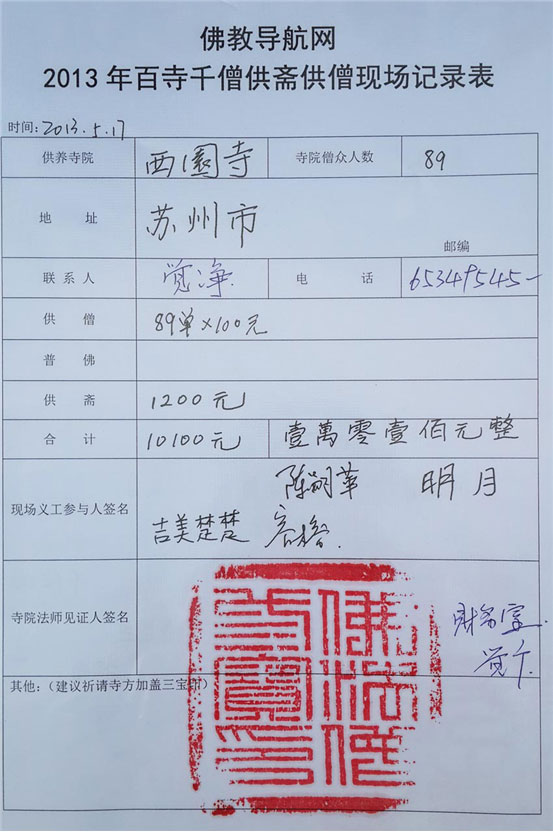 佛教导航网
2013年百寺千僧供斋供僧现场记录表
时间：2013.5.17
供养寺院 西園寺 寺院僧众人数 89
地 址 苏州市 邮编
联系人 觉净 电 话 65349545
供 僧 89单×100元
普 佛
供 斋 1200元
合 计 10100元 壹萬零壹佰元整
明月
现场义工参与人签名
吉美楚楚
寺院法师见证人签名 财务室
其他：（建议祈请寺方加盖三宝印）
佛法僧
三寶印